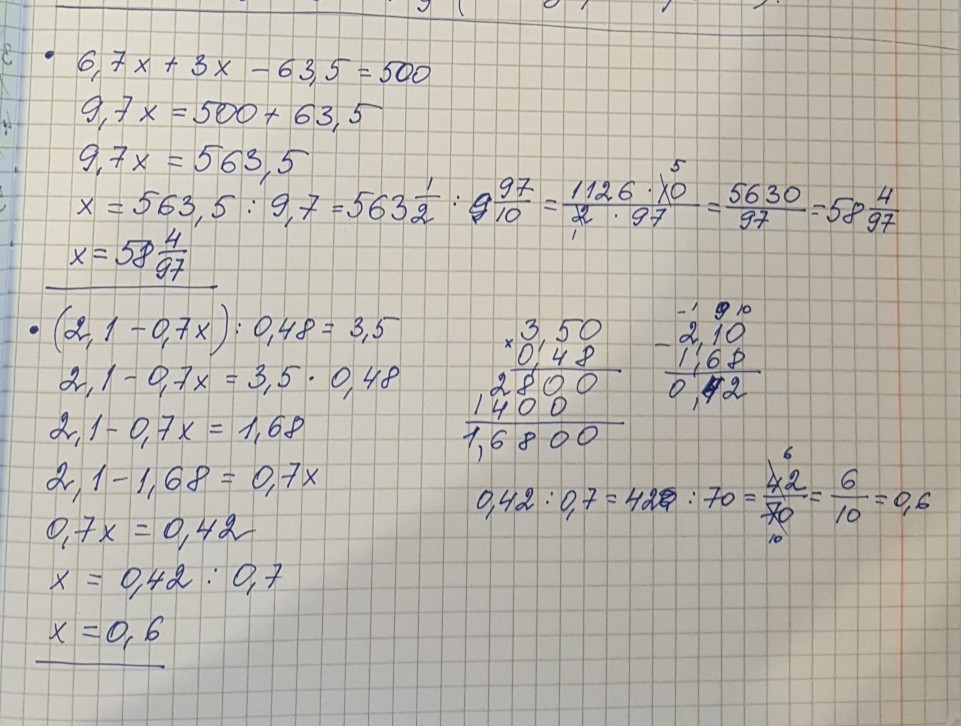 6,7x + 3x - 63,5 = 500
9,7x = 500 + 63,5
9,7x = 563,5
x = 563,5 : 9,7 = 563 1/2 : 97/10 = 1126 · 10/2 · 97 = 5630/97 = 58 4/97
5
1
x = 58 4/97
(2,1 - 0,7x) : 0,48 = 3,5
2,1 - 0,7x = 3,5 · 0,48
2,1 - 0,7x = 1,68
2,1 - 1,68 = 0,7x
0,7x = 0,42
x = 0,42 : 0,7
x = 0,6
× 3,50
0,48
2800
1400
1,6800
-1 9 10
- 2,10
1,68
0,42
0,42 : 0,7 = 42 : 70 = 42/70 = 6/10 = 0,6
6
10